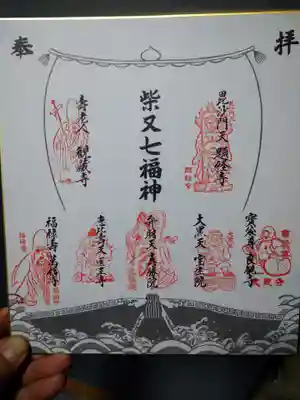 奉拝
毘沙門天 題経寺
柴又七福神
壽老人 観蔵寺
良観寺
大黒天 宝生院
真勝院
恵比寿天 医王寺
福禄寿 萬福寺